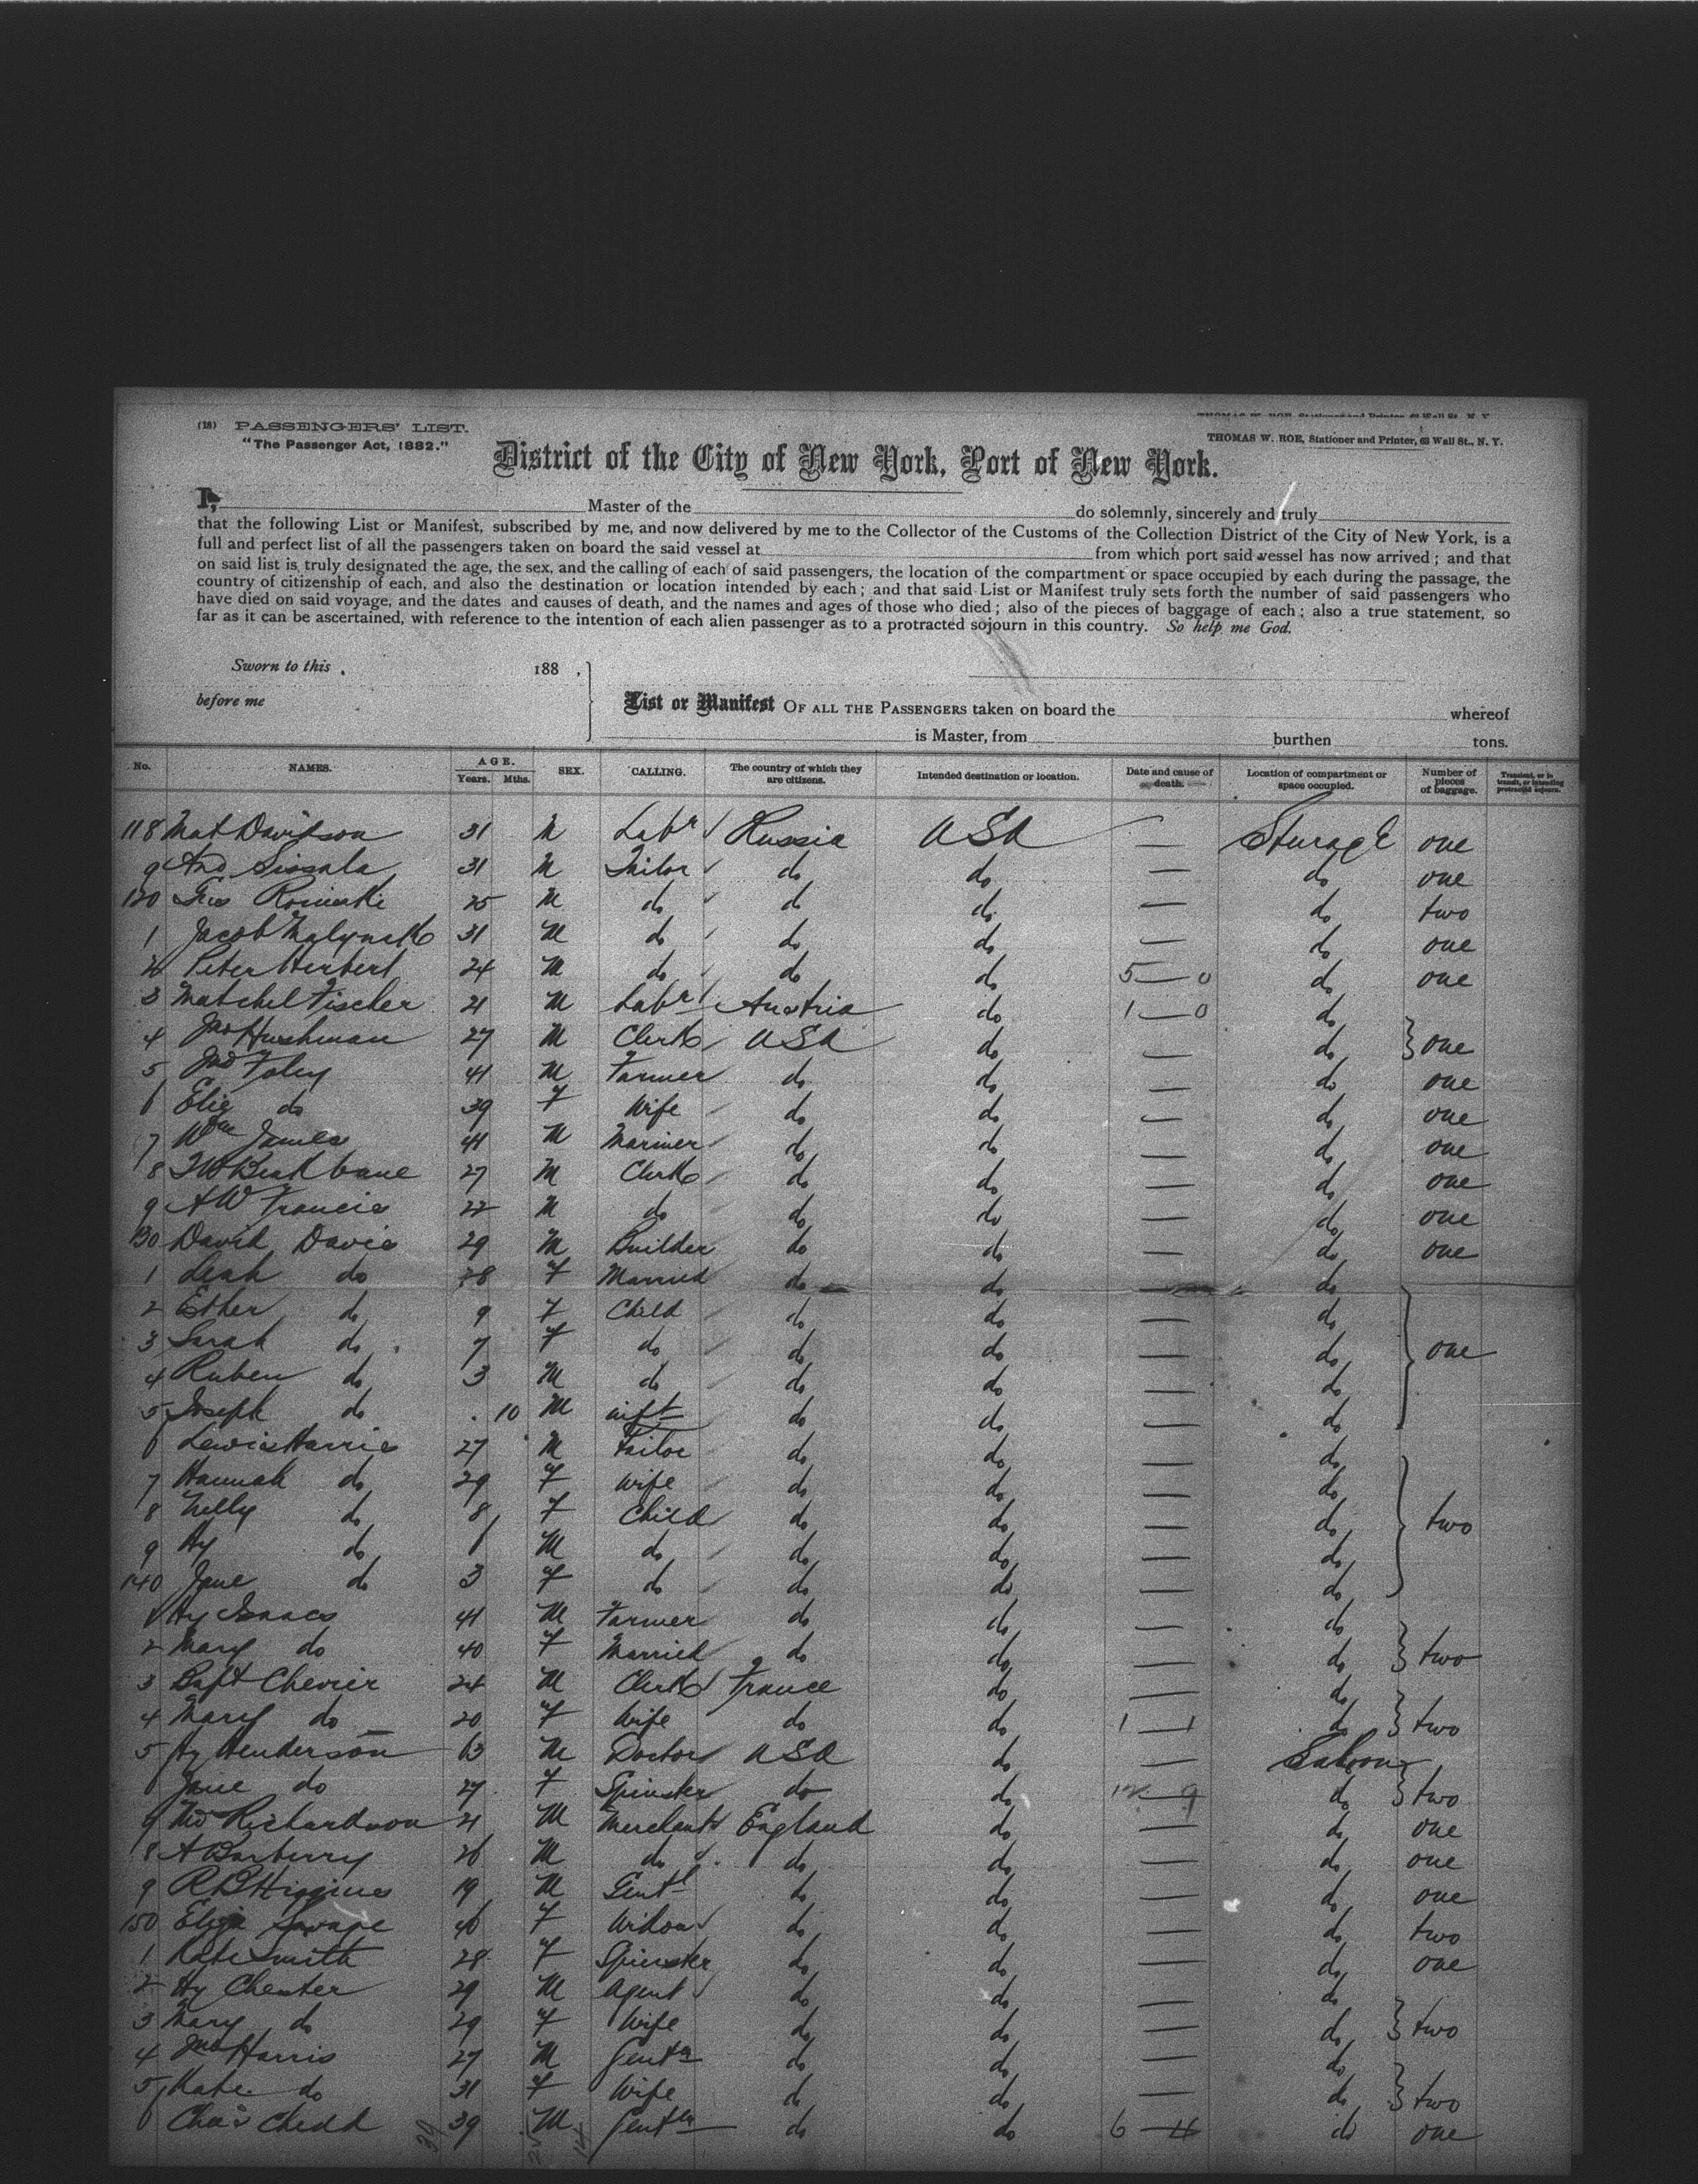 (18) PASSENGERS' LIST.
"The Passenger Act, 1882."
THOMAS W. ROE, Stationer and Printer, 62 Wall St., N. Y.
District of the City of New York, Port of New York.
I, Master of the do solemnly, sincerely and truly
that the following List or Manifest, subscribed by me, and now delivered by me to the Collector of the Customs of the Collection District of the City of New York, is a
full and perfect list of all the passengers taken on board the said vessel at from which port said vessel has now arrived; and that
on said list is truly designated the age, the sex, and the calling of each of said passengers, the location of the compartment or space occupied by each during the passage, the
country of citizenship of each, and also the destination or location intended by each; and that said List or Manifest truly sets forth the number of said passengers who
have died on said voyage, and the dates and causes of death, and the names and ages of those who died; also of the pieces of baggage of each; also a true statement, so
far as it can be ascertained, with reference to the intention of each alien passenger as to a protracted sojourn in this country. So help me God.
Sworn to this 188 ,
before me
List or Manifest OF ALL THE PASSENGERS taken on board the whereof
is Master, from burthen tons.
No. NAMES. AGE. Years. Mths. SEX. CALLING. The country of which they are citizens. Intended destination or location. Date and cause of death. Location of compartment or space occupied. Number of pieces of baggage. Transient, or in transit, or intending protracted sojourn.
118 Mat Davidson 31 M Labr Russia USA — Sturage one
9 And Sissala 31 M Tailor do do — do one
120 Gus 25 M do do do — do two
1 Jacob 31 M do do do — do one
2 Peter Herbert 24 M do do do 5—0 do one
3 Matchel Fischer 21 M Labr Austria do 1—0 do
4 Jno Hushman 27 M Clerk USA do — do one
5 Jno Foley 41 M Farmer do do — do one
6 Eliz do 39 F Wife do do — do one
7 Wm James 41 M Mariner do do — do one
8 27 M Clerk do do — do one
9 A W Francis 22 M do do do — do one
130 David Davis 29 M Builder do do — do one
1 Leah do 28 F Married do do — do
2 Esther do 9 F Child do do — do
3 Sarah do 7 F do do do — do one
4 Ruben do 3 M do do do — do
5 Joseph do 10 M inft do do — do
6 Lewis Harris 27 M Tailor do do — do
7 Hannah do 29 F Wife do do — do
8 Nelly do 8 F Child do do — do two
9 Hy do 6 M do do do — do
140 Jane do 3 F do do do — do
1 Hy Isaacs 41 M Farmer do do — do
2 Mary do 40 F Married do do — do two
3 Bapt Chevier 24 M Clerk France do — do
4 Mary do 20 F Wife do do 1—1 do two
5 Hy Henderson 63 M Doctor USA do — Saloon
6 Jane do 27 F Spinster do do 12—9 do two
7 Richardson 21 M Merchant England do — do one
8 A Barberry 26 M do do do — do one
9 R B Higgins 19 M Gentl do do — do one
150 Eliza Savage 46 F Widow do do — do two
1 Kate Smith 28 F Spinster do do — do one
2 Hy Chester 29 M Agent do do — do
3 Mary do 29 F Wife do do — do two
4 Jno Harris 27 M Gentn do do — do
5 Kate do 31 F Wife do do — do two
6 Chas Chedd 39 M Gentn do do 6—4 do one